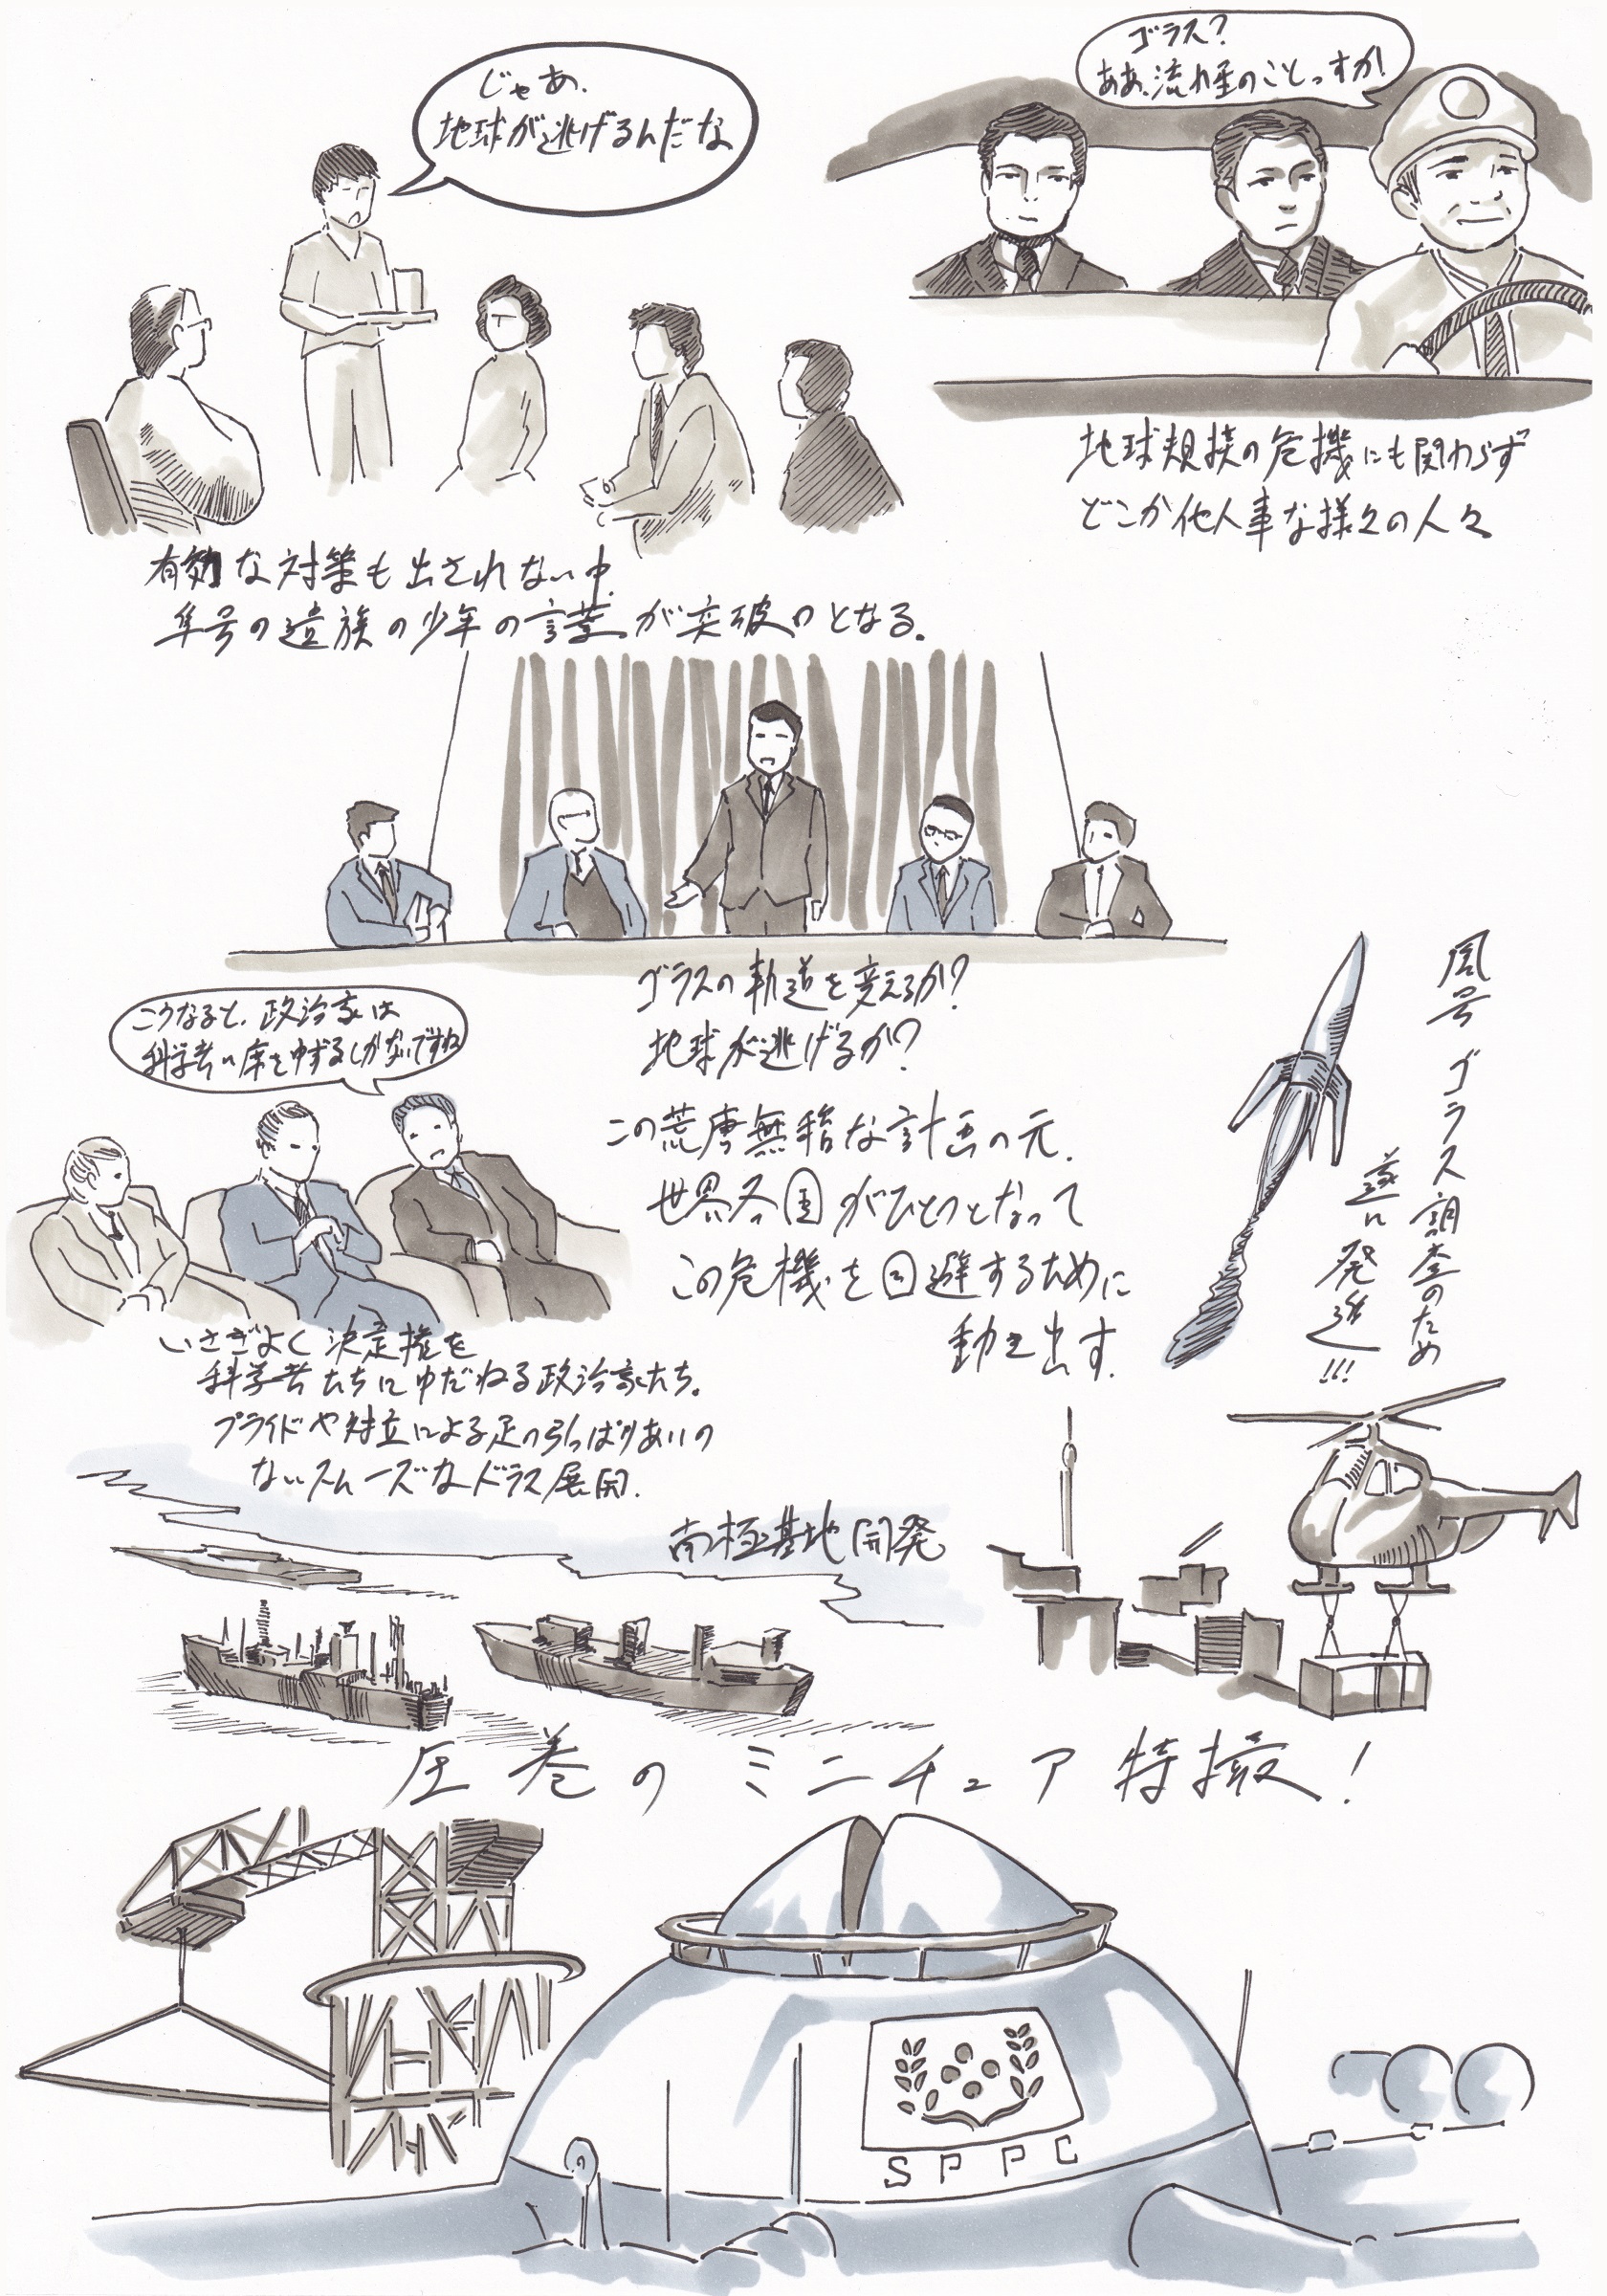 じゃあ、
地球が逃げるんだな
ゴラス?
ああ、流れ星のことっすか!
地球規模の危機にも関わらず
どこか他人事な様々の人々
有効な対策も出されない中、
隼号の遺族の少年の言葉が突破口となる。
ゴラスの軌道を変えるか?
地球が逃げるか?
この荒唐無稽な計画の元、
世界各国がひとつとなって
この危機を回避するために
動き出す。
こうなると、政治家は
科学者に席をゆずるしかないですね
いさぎよく決定権を
科学者たちにゆだねる政治家たち。
プライドや対立による足の引っぱりあいの
ないスムーズなドラマ展開。
鳳号 ゴラス調査のため
遂に発進!!!
南極基地開発
圧巻のミニチュア特撮!
SPPC